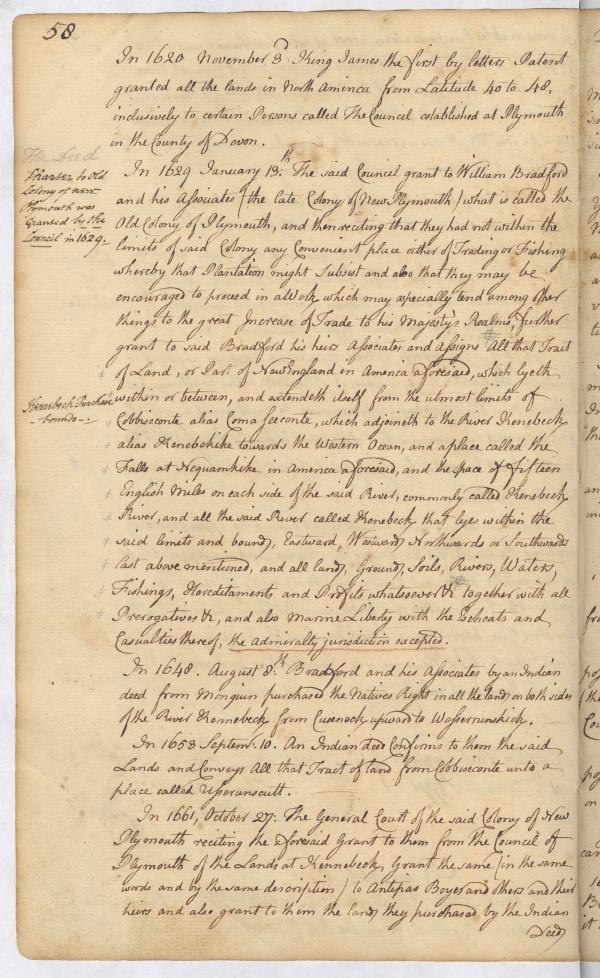 58
In 1620 November 3d King James the first by letters Patent
granted all the lands in North America from Latitude 40 to 48,
inclusively to certain Persons called The Council established at Plymouth
in the County of Devon.
The Deed
Charter to Old
Colony of New
Plymouth was
Granted by the
Council in 1629.
In 1629 January 13.th The said Council grant to William Bradford
and his Associates (the late Colony of New Plymouth) what is called the
Old Colony of Plymouth, and then reciting that they had not within the
limits of said Colony any Convenient place either of Trading or Fishing
whereby that Plantation might Subsist and also that they may be
encouraged to proceed in a Work which may especially tend among other
things to the great Increase of Trade to his Majesty's Realms, further
grant to said Bradford his heirs Associates and Assigns All that Tract
of Land, or Part of New England in America aforesaid, which lyeth
Kennebeck Purchase
bounds -
within or between, and extendeth itself from the utmost limits of
Cobbiseconte alias Comaseeconte, which adjoineth to the River Kenebeck
alias Kenebekike towards the Western Ocean, and a place called the
Falls at Neguamkike in America aforesaid, and the space of fifteen
English Miles on each side of the said River, commonly called Kenebeck
River, and all the said River called Kenebeck that lyes within the
said limits and bounds, Eastward, Westward Northwards or Southwards
last above mentioned, and all lands, Grounds, Soils, Rivers, Waters,
Fishings, Hereditaments and Profits whatsoever &c together with all
Prerogatives &c, and also Marine Liberty with the Escheats and
Casualties thereof, the admeralty jurisdiction excepted.
In 1648. August 8.th Bradford and his Associates by an Indian
deed from Monquin purchased the Natives Right in all the lands on both sides
of the River Kennebeck from Cusenock upward to Wesserrunskick.
In 1653 Septemr. 10. An Indian deed Confirms to them the said
Lands and Conveys All that Tract of land from Cobbiseconte unto a
place called Useranscutt.
In 1661, October 27. The General Court of the said Colony of New
Plymouth reciting the aforesaid Grant to them from the Council of
Plymouth of the Lands at Kennebeck, Grant the same (in the same
words and by the same description) to Antipas Boyes and others and their
heirs and also grant to them the lands they purchased by the Indian
Deeds